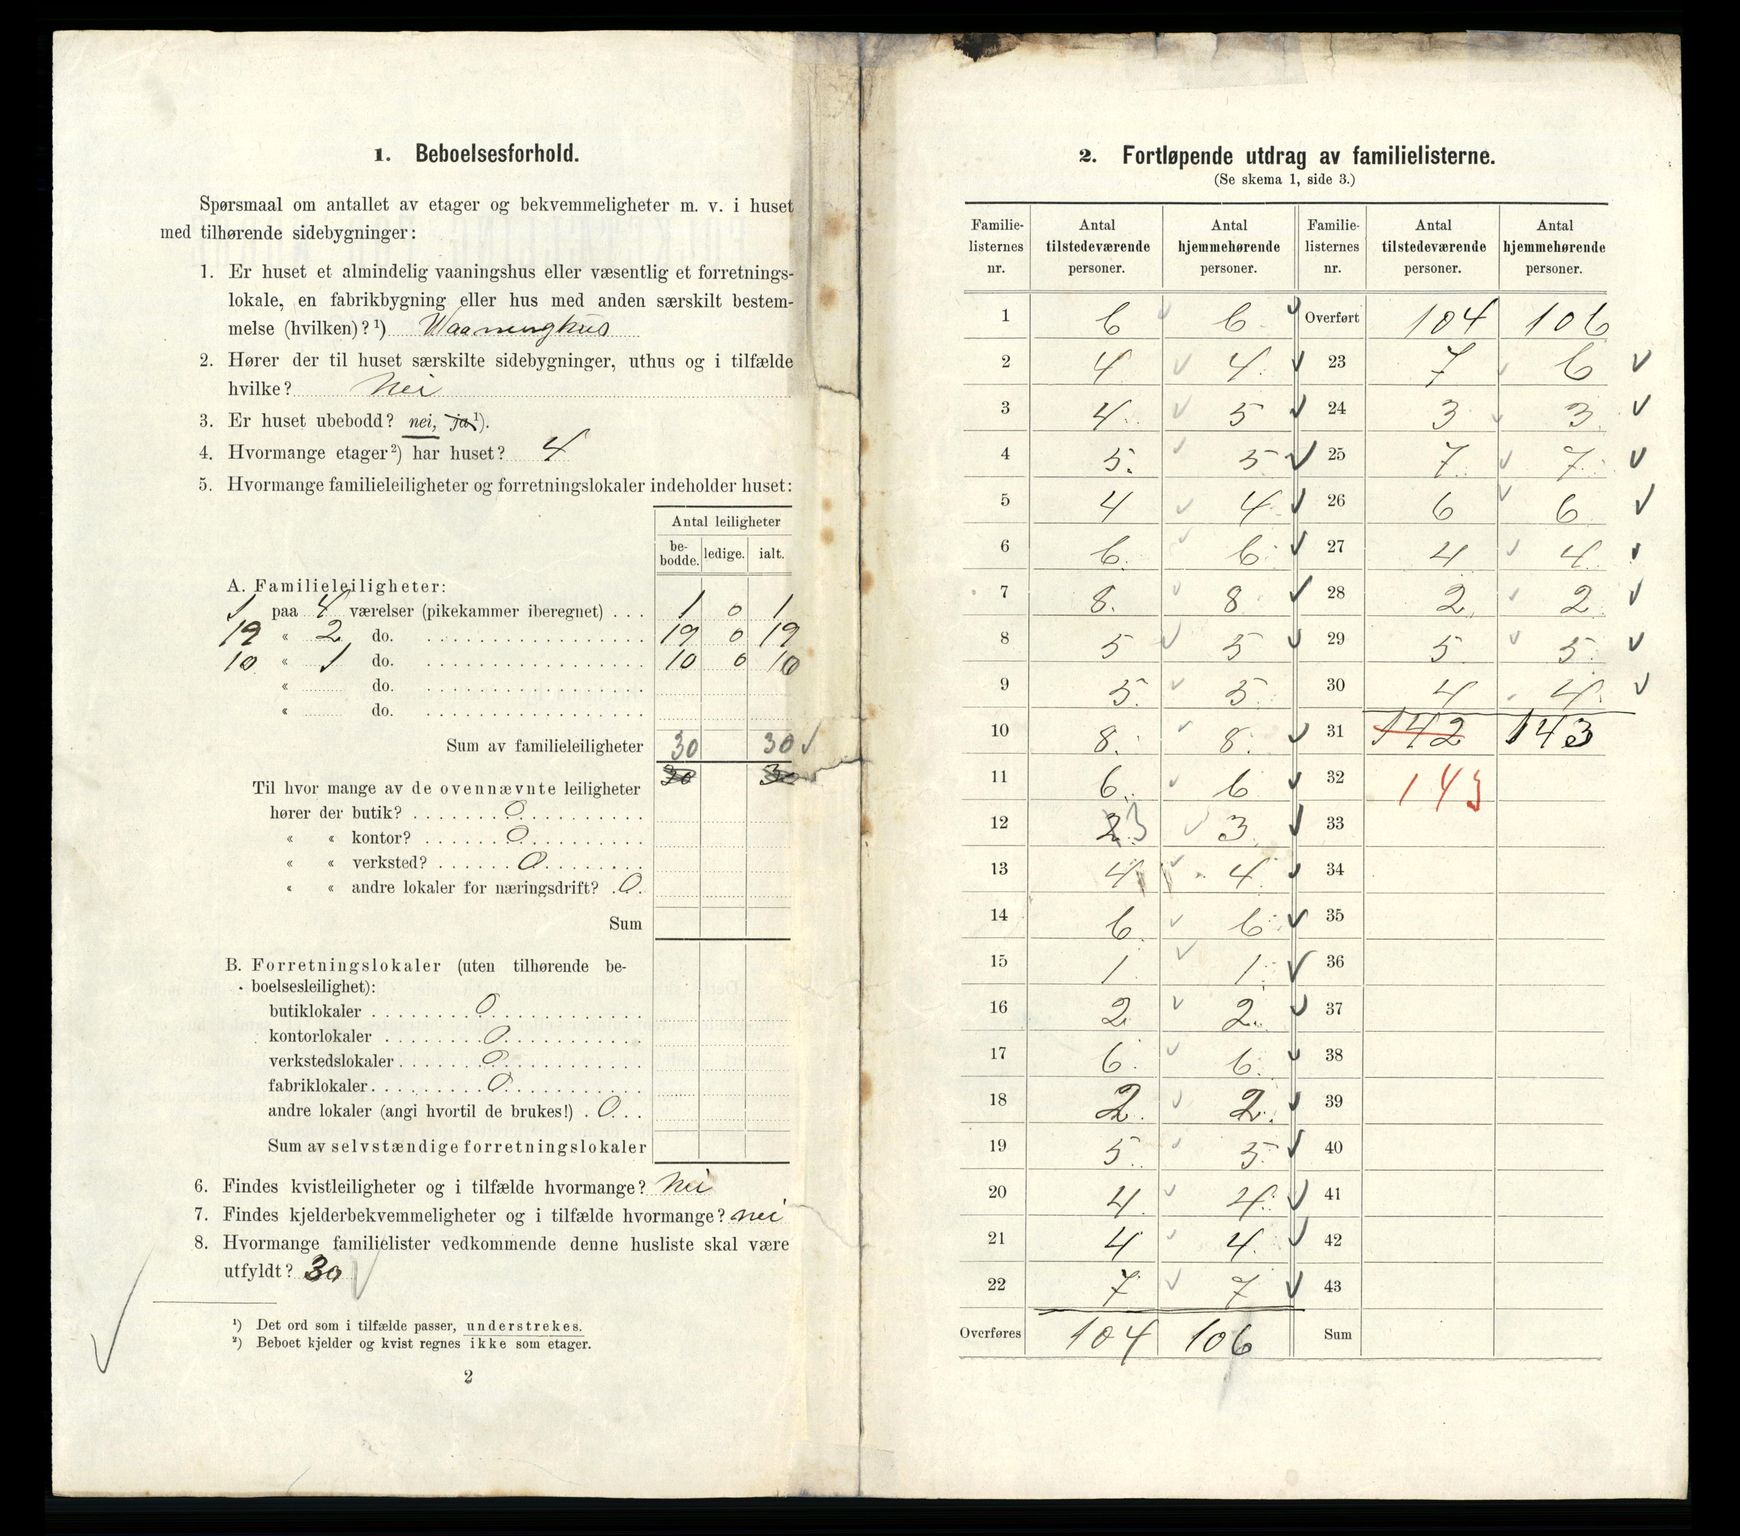 1. Beboelsesforhold.
Spørsmaal om antallet av etager og bekvemmeligheter m. v. i huset
med tilhørende sidebygninger:
1. Er huset et almindelig vaaningshus eller væsentlig et forretnings-
lokale, en fabrikbygning eller hus med anden særskilt bestem-
melse (hvilken)?¹) Vaaningshus
2. Hører der til huset særskilte sidebygninger, uthus og i tilfælde
hvilke? Nei
3. Er huset ubebodd? nei, ja¹).
4. Hvormange etager²) har huset? 4
5. Hvormange familieleiligheter og forretningslokaler indeholder huset:
Antal leiligheter
be-bodde. ledige. ialt.
A. Familieleiligheter:
1 paa 4 værelser (pikekammer iberegnet) . . . 1 0 1
19 « 2 do. 19 0 19
10 « 1 do. 10 0 10
« do.
« do.
Sum av familieleiligheter 30 30 ✓
30 30
Til hvor mange av de ovennævnte leiligheter
hører der butik? 0
« « kontor? 0
« « verksted? 0
« « andre lokaler for næringsdrift? 0
Sum
B. Forretningslokaler (uten tilhørende be-
boelsesleilighet):
butiklokaler 0
kontorlokaler 0
verkstedslokaler 0
fabriklokaler 0
andre lokaler (angi hvortil de brukes!) 0
Sum av selvstændige forretningslokaler
6. Findes kvistleiligheter og i tilfælde hvormange? Nei
7. Findes kjelderbekvemmeligheter og i tilfælde hvormange? nei
8. Hvormange familielister vedkommende denne husliste skal være
utfyldt? 30 ✓
¹) Det ord som i tilfælde passer, understrekes.
²) Beboet kjelder og kvist regnes ikke som etager.
2
2. Fortløpende utdrag av familielisterne.
(Se skema 1, side 3.)
Familie-listernes nr. Antal tilstedeværende personer. Antal hjemmehørende personer. Familie-listernes nr. Antal tilstedeværende personer. Antal hjemmehørende personer.
1 6 6 Overført 104 106
2 4 4 23 7 6
3 4 5 24 3 3
4 5 5 25 7 7
5 4 4 26 6 6
6 6 6 27 4 4
7 8 8 28 2 2
8 5 5 29 5 5
9 5 5 30 4 4
10 8 8 31 142 143
11 6 6 32 143
12 2 3 3 33
13 4 4 34
14 6 6 35
15 1 1 36
16 2 2 37
17 6 6 38
18 2 2 39
19 5 5 40
20 4 4 41
21 4 4 42
22 7 7 43
Overføres 104 106 Sum